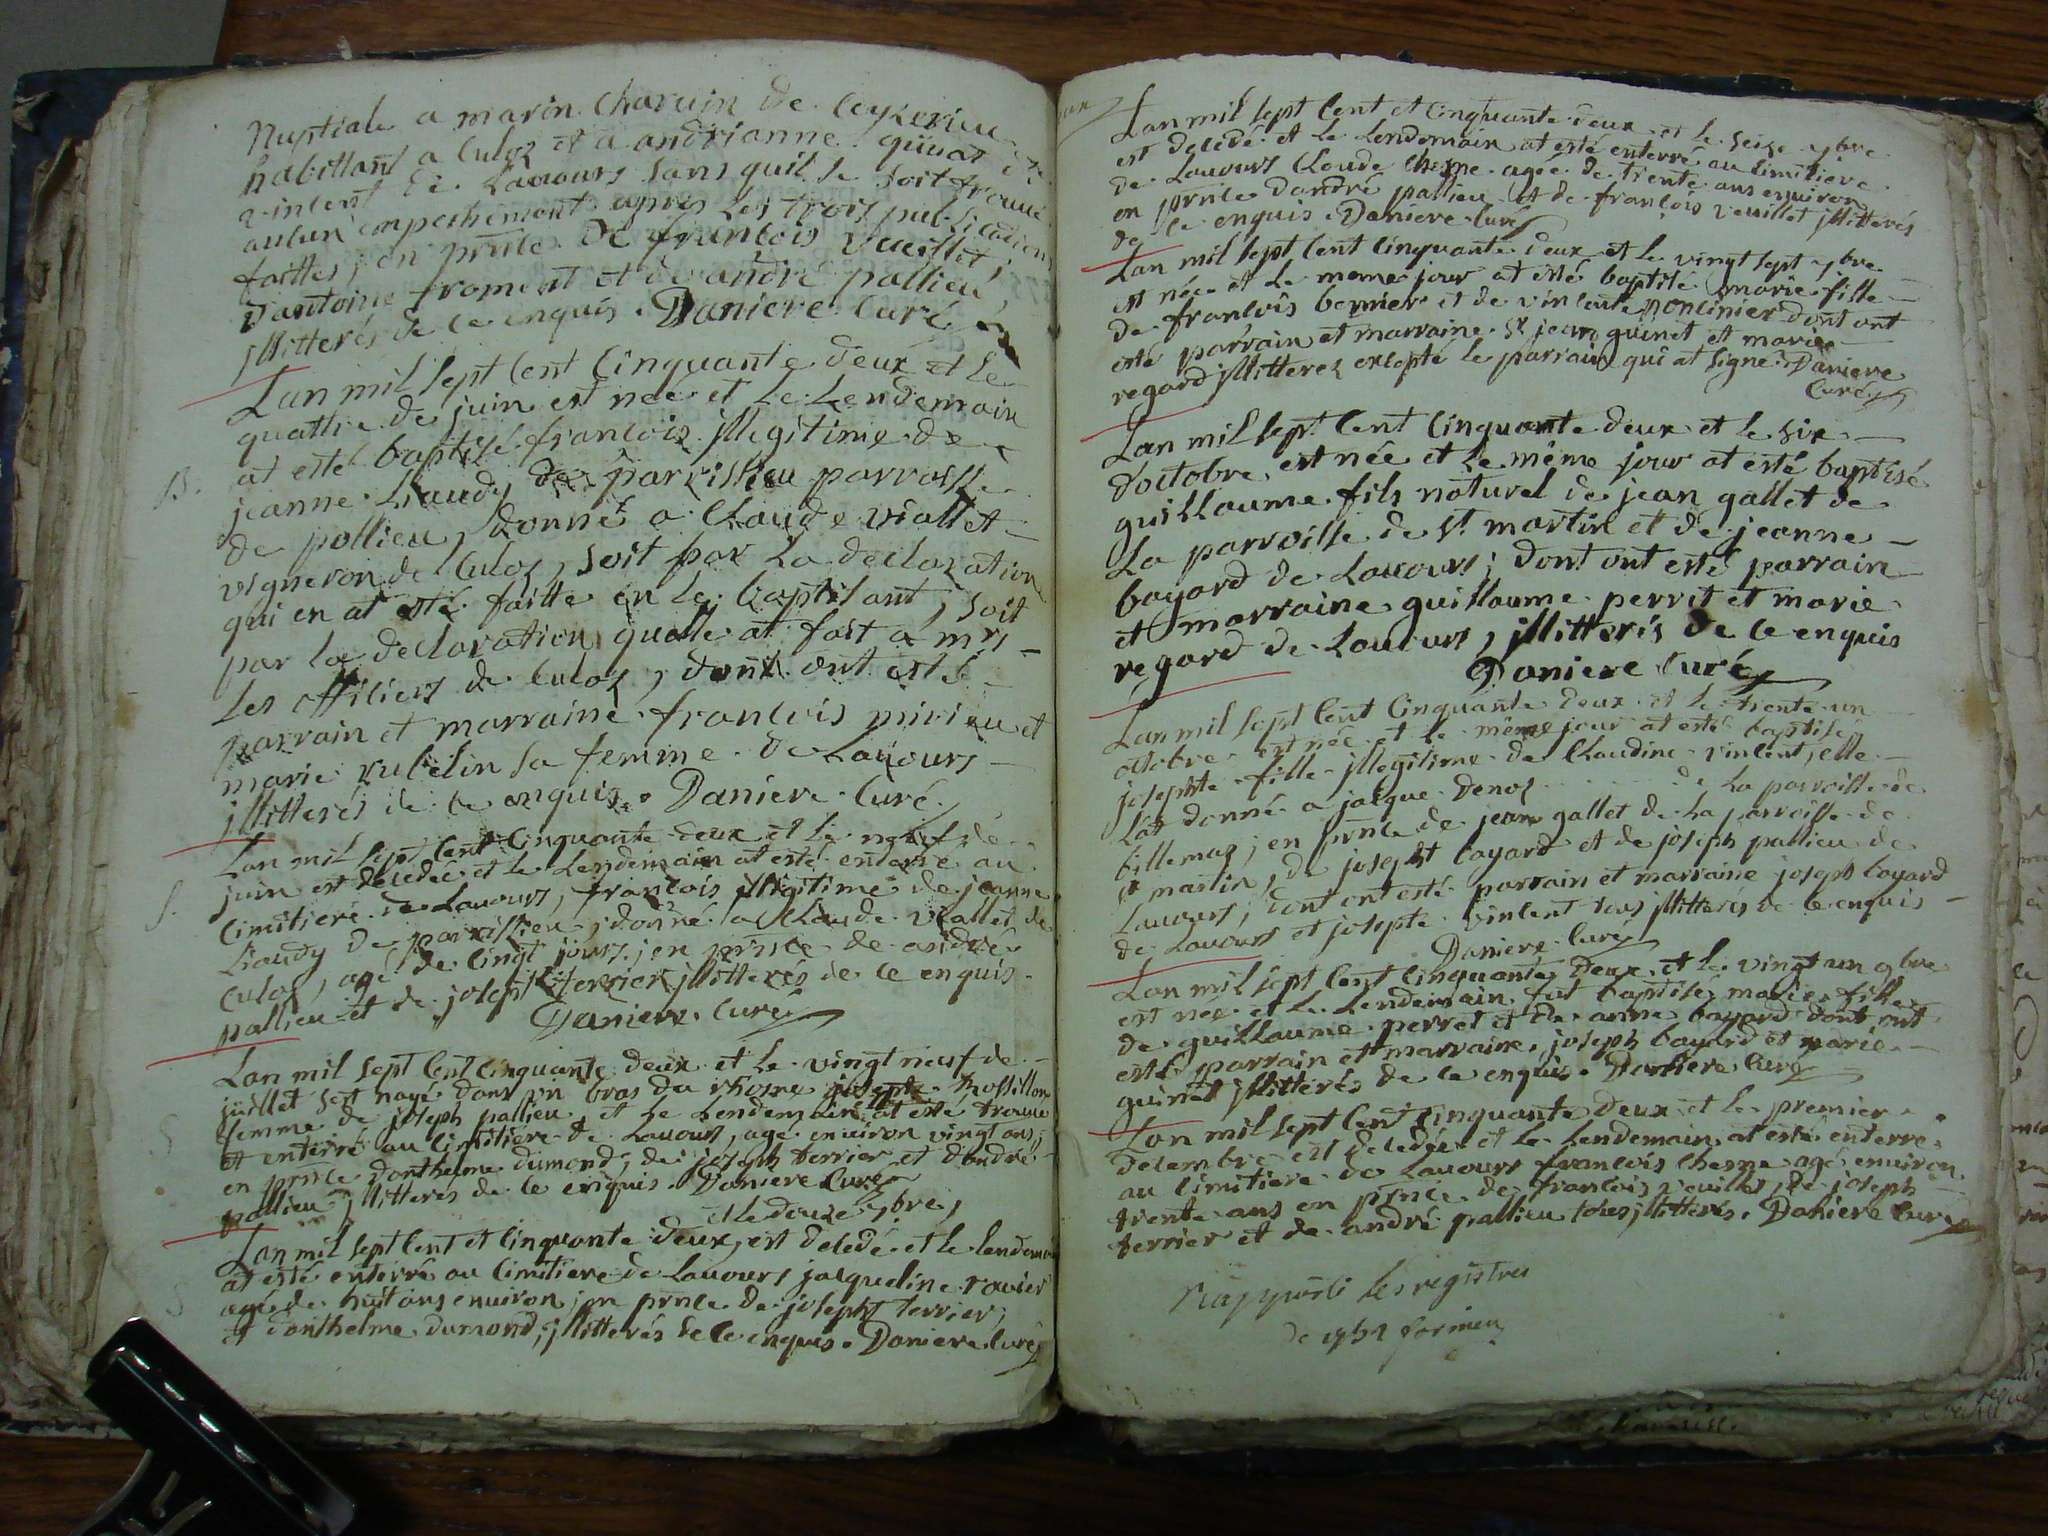 Nuptiale a marin Charuin de Ceyzerieu
habittant a Culoz et a andrianne guinat de
vincent de Lauours sans quil se soit trouué
aucun empechement apres les trois publications
faittes, en prnce de francois vueillet,
dantoine froment et de andré pallieu
jllitterés de ce enquis. Daniere Curé
Lan mil sept cent Cinquante deux et le
quattre de juin est neé et le Lendemain
at esté baptisé francois jllegitime de
B.
jeanne Liaudy de parrissieu parroisse
de pollieu, donné a Claude viallet
vigneron de Culoz, soit par la declaration
qui en at esté faitte en le baptisant, soit
par la declaration quelle at fait a mrs
Les officiers de Culoz, dont ont esté
parrain et marraine francois mirieu et
marie rubelin sa femme de Lauours
jllitterés de ce enquis. Daniere Curé
Lan mil sept cent cinquante deux et le neuf de
juin est decedé et le Lendemain at esté enterré au
S.
cimitiere de Lauours, francois jllegitime de jeanne
Liaudy de parrissieu, donné a Claude viallet de
Culoz, agé de cinqt jours, en prnce de andré
pallieu et de josept terrier jllitterés de ce enquis
Daniere Curé
Lan mil sept cent cinquante deux et le vingt neuf de
juillet sest nayé dans un bras du rhosne josepte Rossillon
femme de joseph pallieu, et le Lendemain at esté trouué
S
et enterré au cimitiere de Lauours, agé enuiron vingt ans,
en prnce donthelme dumond, de joseph terrier et dandré
pallieu jllitterés de ce enquis. Daniere Curé
et le douze 7bre,
Lan mil sept cent et cinquante deux, est decedé et le lendemain
at esté enterré au cimitiere de Lauours jacqueline rauier
S
agée de huit ans enuiron, en prnce de josepht terrier,
et donthelme dumond, jllitterés de ce enquis. Daniere Curé
Lan mil sept cent et cinquante deux et le seize 7bre
est decedé et le Lendemain at esté enterré au cimitiere
de Lauours Claude Chesne agée de trente ans enuiron
en prnce dandré pallieu et de francois vueillet jllitterés
de ce enquis. Daniere Curé
Lan mil sept cent cinquante deux et le vingt sept 7bre
est née et le meme jour at esté baptisé marie fille
de francois bernier et de vincente poncinier dont ont
esté parrain et marraine sr jean guinet et marie
regard jllitterez excepté le parrain qui at signé. Daniere
Curé
Lan mil sept cent Cinquante deux et le six
doctobre est née et le même jour at esté baptisé
guillaume fils naturel de jean gallet de
La parroisse de st martin et de jeanne
bayard de Lauours; dont ont esté parrain
et marraine guillaume perret et marie
regard de Lauours, jllitterés de ce enquis
Daniere Curé
Lan mil sept cent Cinquante deux et le trente un
octobre est née et le même jour at esté baptisée
josephte fille jllegitime de Claudine vincent, elle
Lat donné a jacque Denoz de La parroisse de
billemaz, en prnce de jean gallet de La parroisse de
st martin, de josepht bayard et de joseph pallieu de
Lauours, dont ont esté parrain et marraine joseph bayard
de Lauours et josepte vincent tous jllitterés de ce enquis
Daniere Curé
Lan mil sept cent cinquante deux et le vingt un 9bre
est née et le Lendemain fut baptisée marie fille
de guillaume perret et de anne bayard dont ont
esté parrain et marraine joseph bayard et marie
guinet jllitterés de ce enquis. Daniere Curé
Lan mil sept cent cinquante deux et le premier
decembre est decedée et le Lendemain at esté enterré
au cimitiere de Lauours francois Chesne agé enuiron
trente ans en prnce de francois vueillet, de joseph
terrier et de andré pallieu tous jllitterés. Daniere Curé
les registres
de 1752